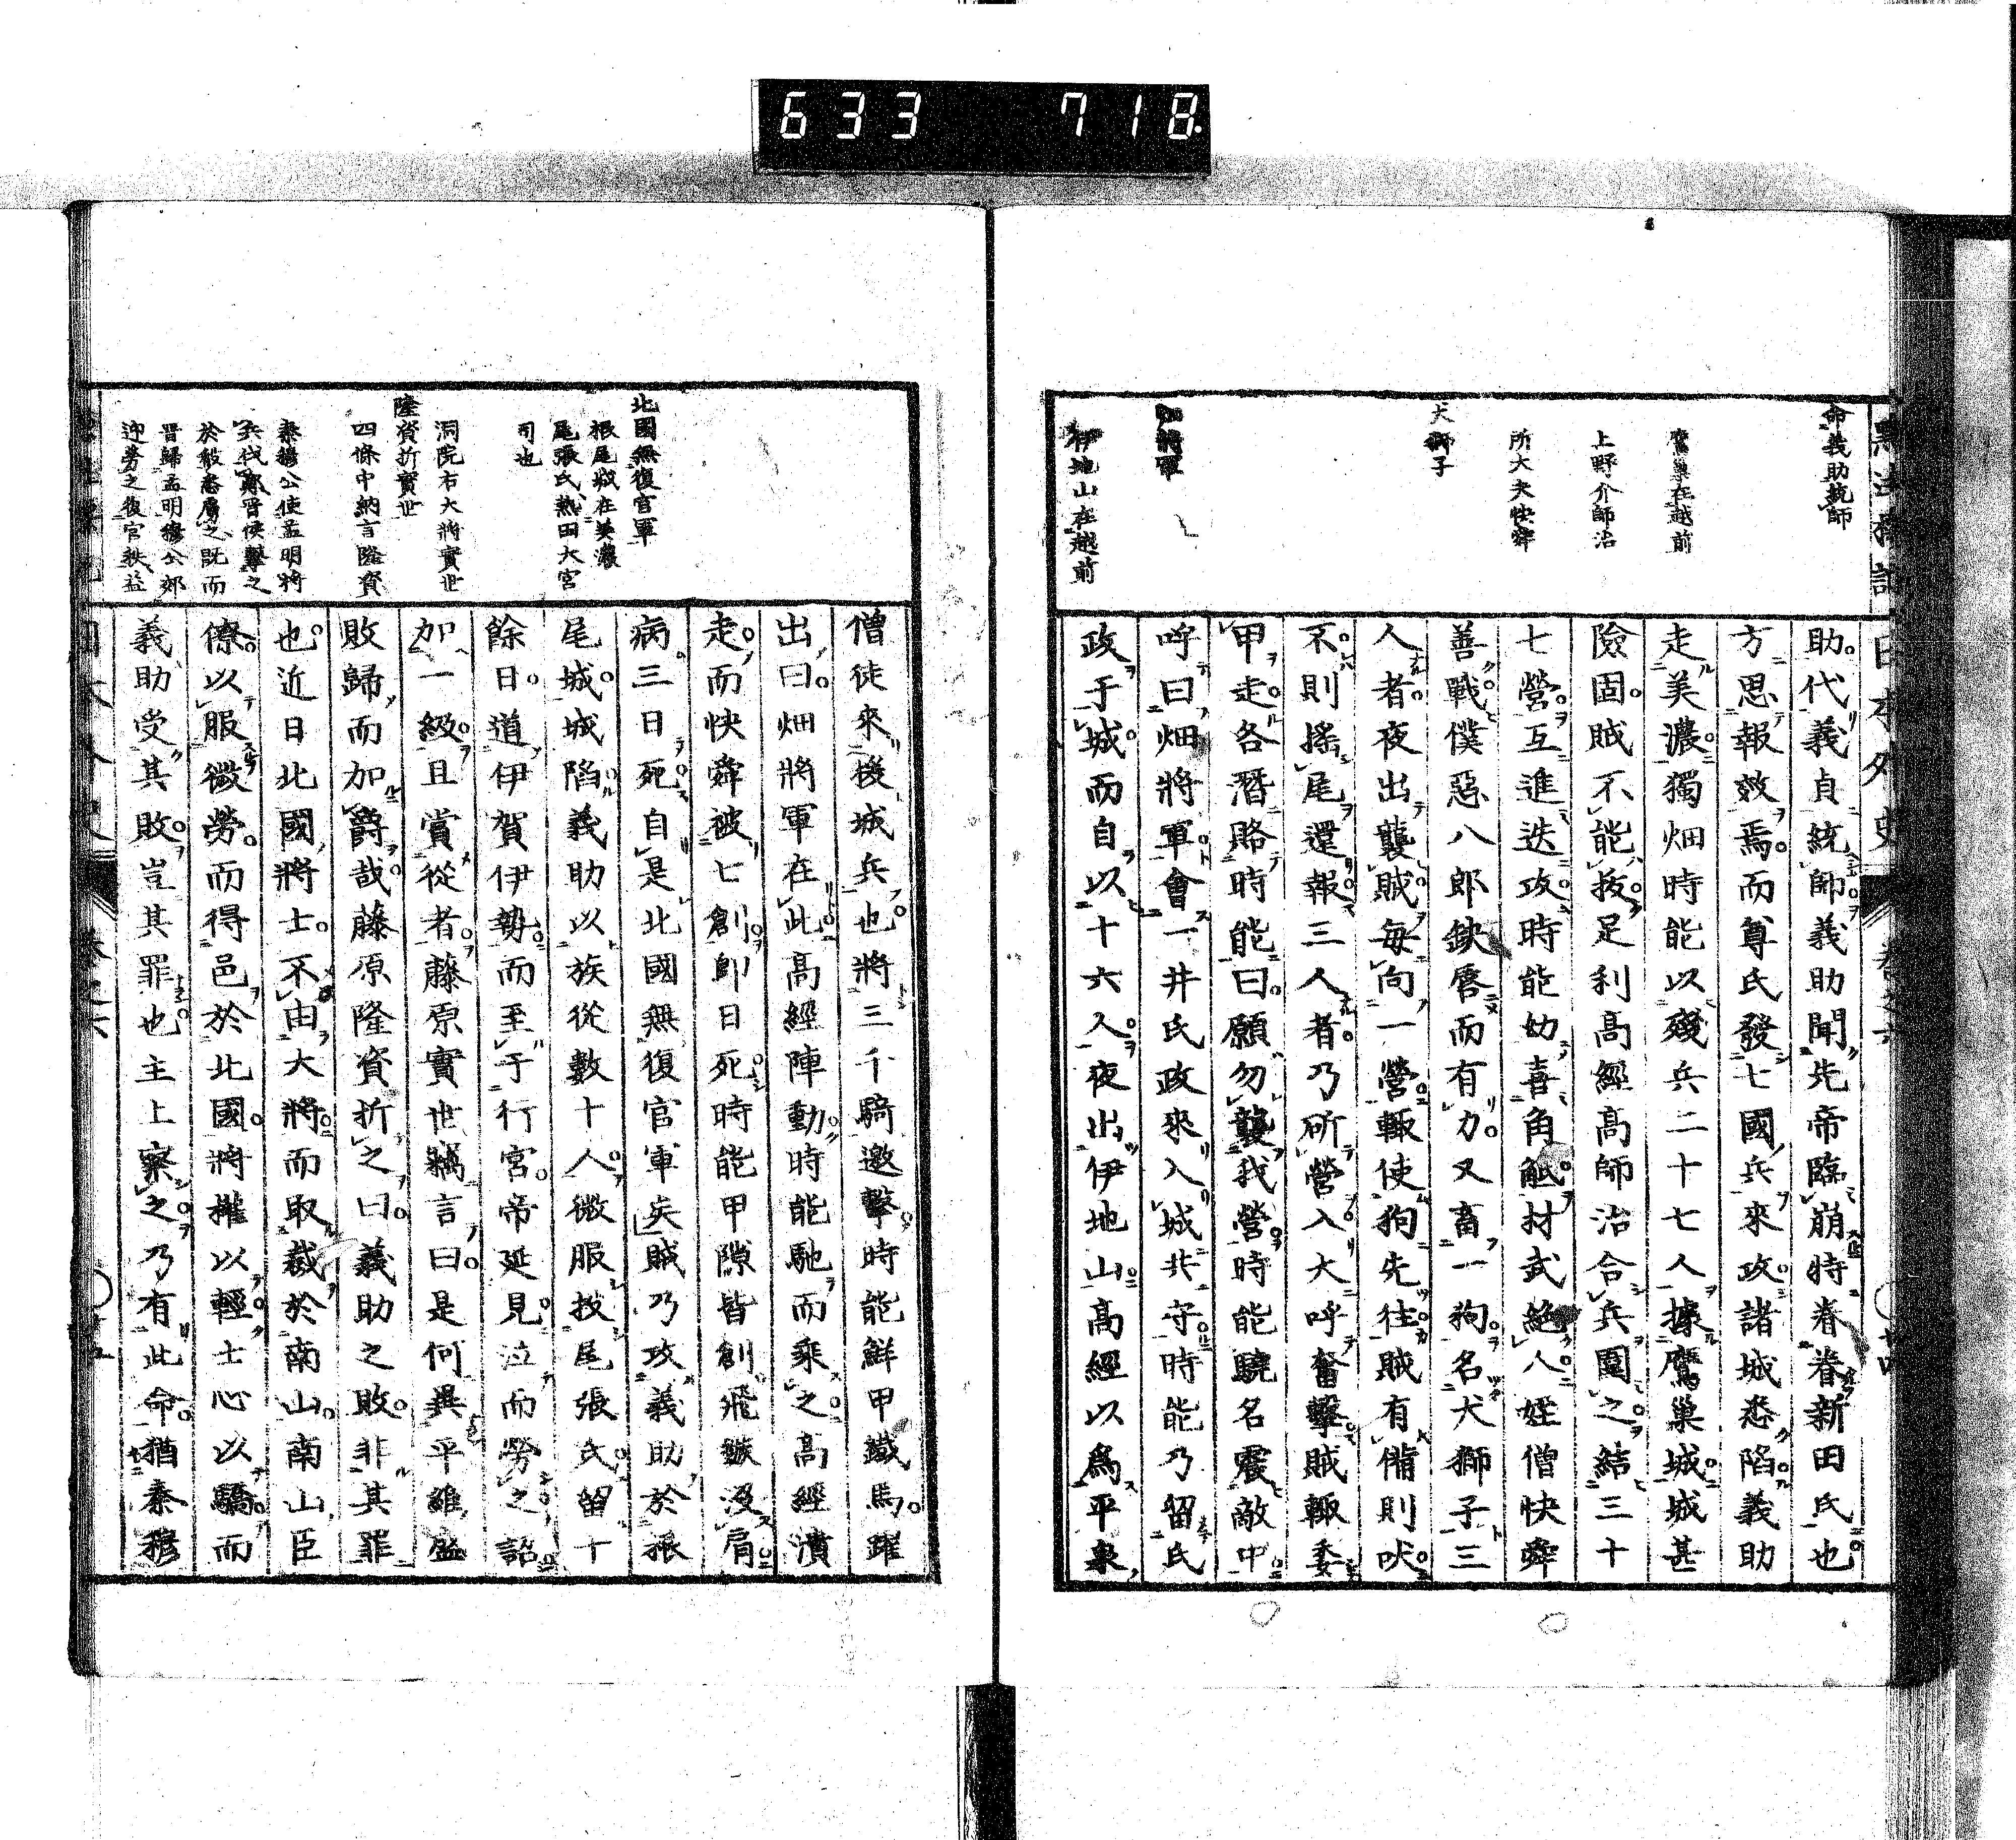 633 718
命義助執師
鷹巢在越前
上野介師治
所大夫快舜
犬獅子
畑將軍
伊地山在越前
助代義貞統師義助聞先帝臨崩特眷眷新田氏也
方思報效焉而尊氏發七國兵來攻諸城悉陷義助
走美濃獨畑時能以殘兵二十七人據鷹巢城城甚
險固賊不能拔足利高經高師治合兵圍之結三十
七營互進迭攻時能幼喜角觝材武絕人姪僧快舜
善戰僕惡八郎鈌脣而有力又畜一狗名犬獅子三
人者夜出襲賊每向一營輙使狗先往賊有備則吠
不則搖尾還報三人者乃斫營入大呼奮擊賊輙委
甲走各潛賂時能曰願勿襲我營時能驍名震敵中
呼曰畑將軍會一井氏政來入城共守時能乃留氏
政于城而自以十六人夜出伊地山高經以爲平泉
北國無復官軍
根尾城在美濃
尾張氏熱田大宮
司也
洞院右大將實世
隆資折實世
四條中納言隆資
秦穆公使孟明將
兵伐鄭晋侯擊之
於殽悉虜之既而
晋歸孟明穆公郊
迎勞之復官秩益
僧徒來援城兵也將三千騎邀擊時能鮮甲鐵馬躍
出曰畑將軍在此高經陣動時能馳而乘之高經潰
走而快舜被七創卽日死時能甲隙皆創飛鏃沒肩
病三日死自是北國無復官軍矣賊乃攻義助於根
尾城城陷義助以族從數十人微服投尾張氏留十
餘日道伊賀伊勢而至于行宮帝延見泣而勞之詔
加一級且賞從者藤原實世竊言曰是何異平維盛
敗歸而加爵哉藤原隆資折之曰義助之敗非其罪
也近日北國將士不由大將而取裁於南山南山臣
僚以服微勞而得邑於北國將權以輕士心以驕而
義助受其敗豈其罪也主上察之乃有此命猶秦穆